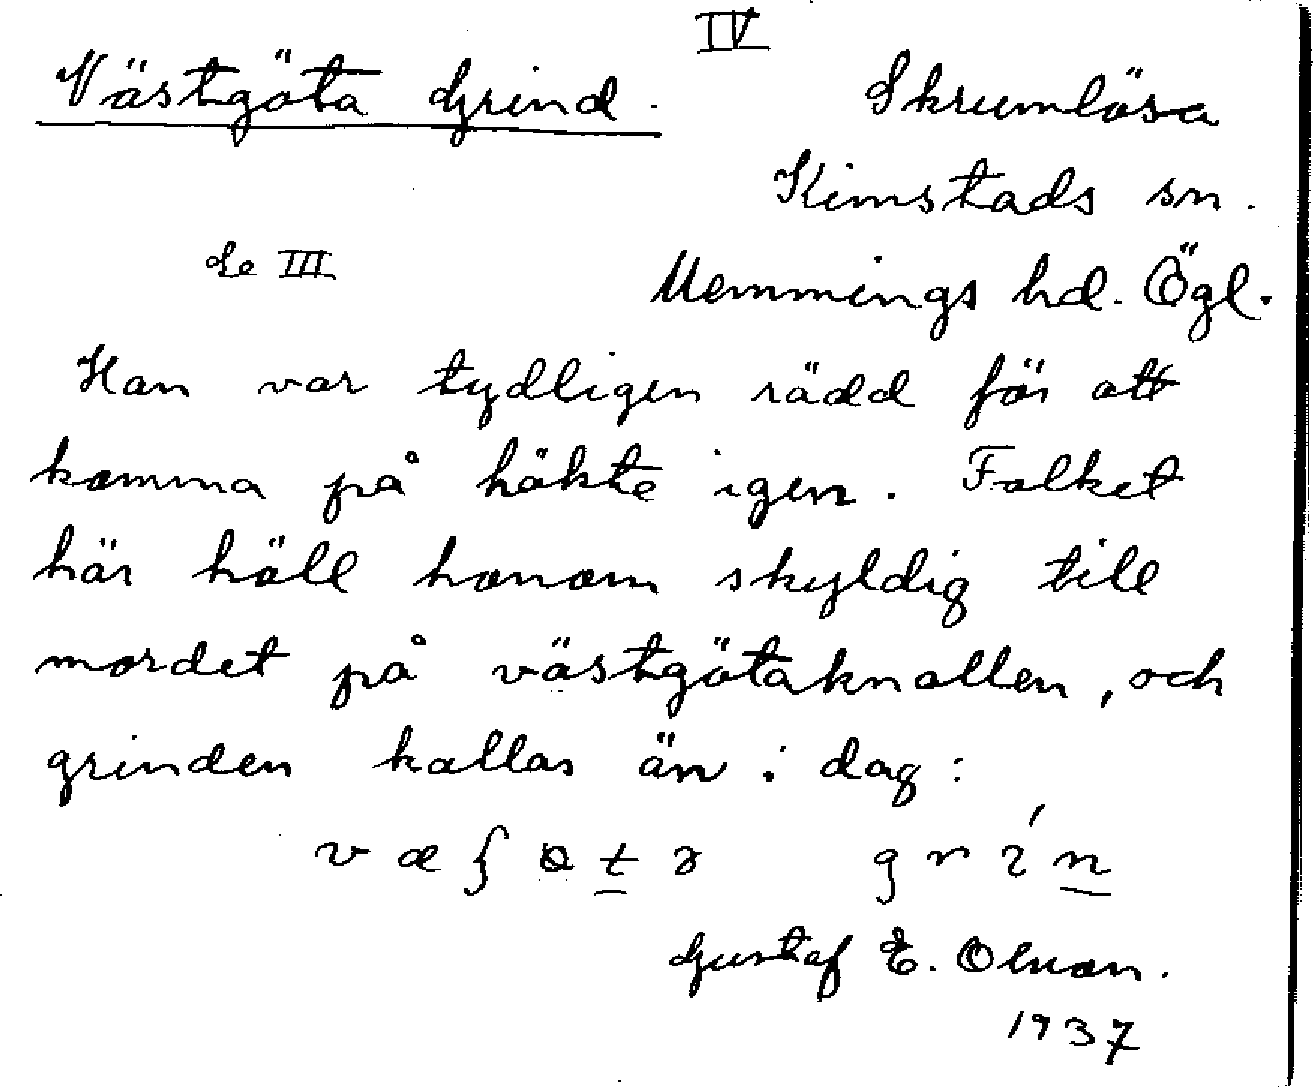 IV
Västgöta Grind.
Skrumlösa
Kimstads sn.
Se III
Memmings hd. Ögl.
Han var tydligen rädd för att
komma på häkte igen. Folket
här höll honom skyldig till
mordet på västgötaknallen, och
grinden kallas än i dag:
gri´n
Gustaf E. Olsson.
1937